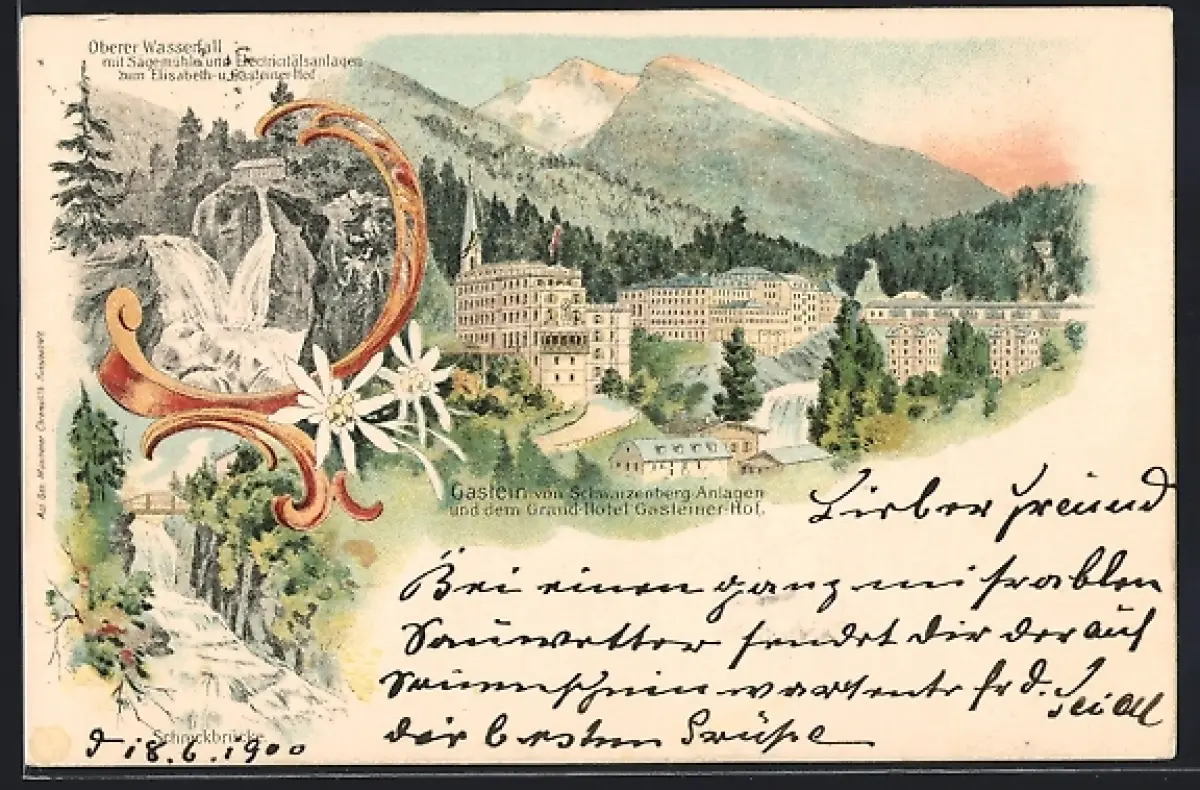 Oberer Wasserfall
mit Sägemühle und Electricitätsanlagen
zum Elisabeth- u. Gasteiner-Hof
Gastein von Schwarzenberg-Anlagen
und dem Grand-Hotel Gasteiner-Hof.
Lieber Freund
Bei einen ganz misrablen
Sauwetter sendet Dir der auf
Sonnenschein wartente Frd.
die besten Grüße
Schreckbrücke
d 18.6.1900